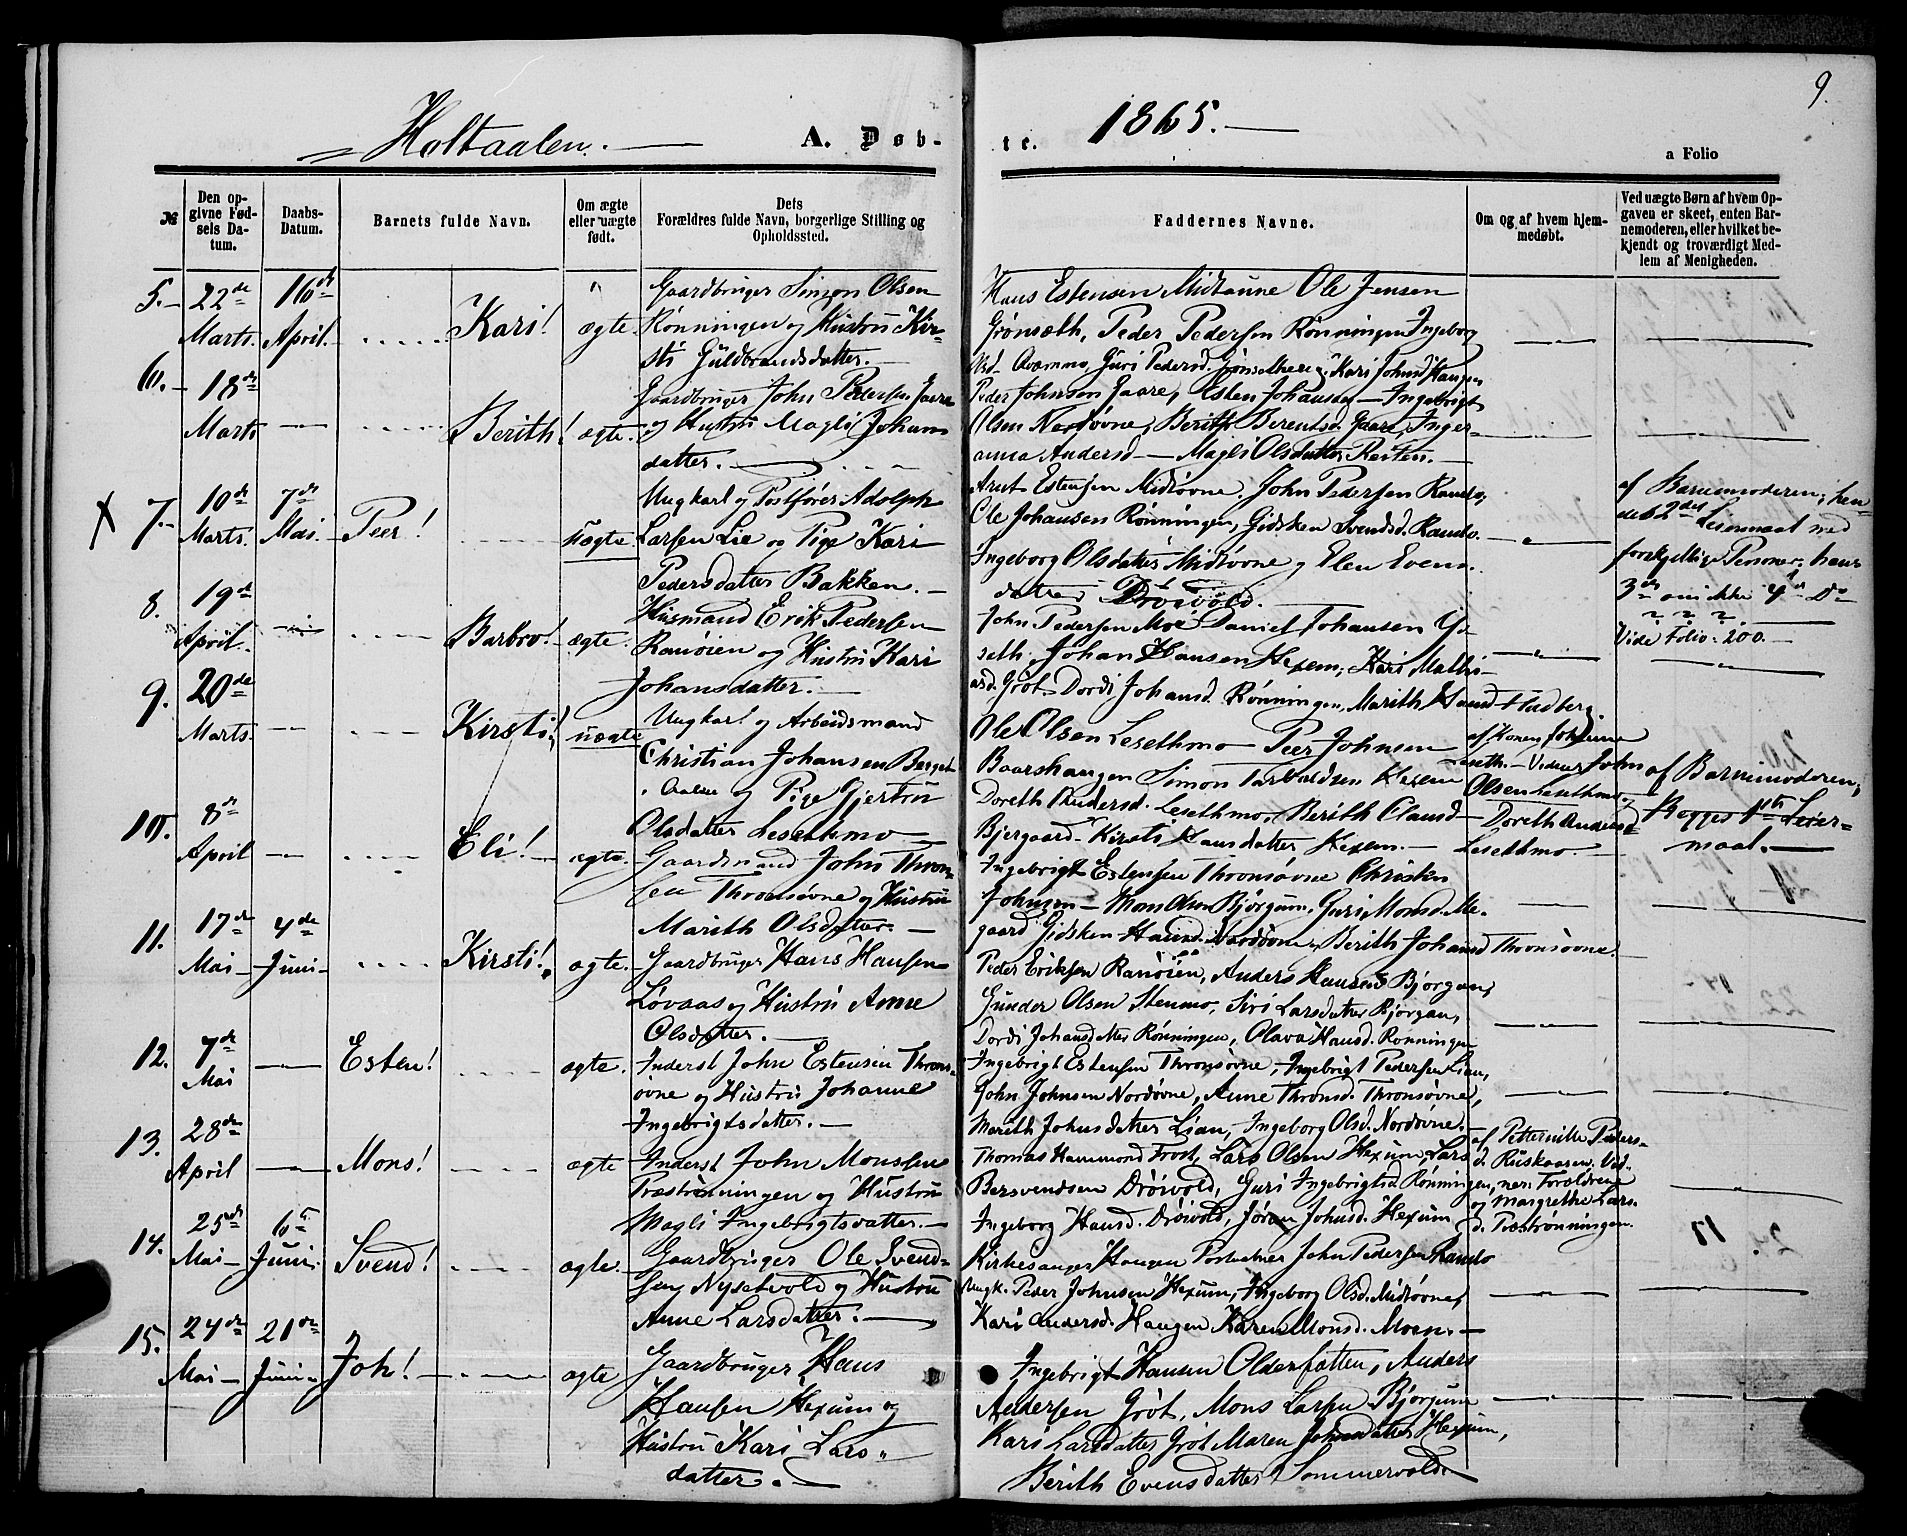 9.
Holtaalen.
A. Døb-
te.
1865.
a Folio
№
Den op-
givne Fød-
sels Da-
tum.
Daabs-
Datum.
Barnets fulde Navn.
Om ægte
eller uægte
født.
Dets
Forældres fulde Navn, borgerlige Stilling og
Opholdssted.
Faddernes Navne.
Om og af hvem hjem-
medøbt.
Ved uægte Børn af hvem Op-
gaven er skeet, enten Bar-
nemoderen, eller hvilket be-
kjendt og troværdigt Med-
lem af Menigheden.
5. 22de Marts. 16de April. Kari! ægte.
Gaardbruger Simon Olsen
Rønningen og Hustru Kir-
sti Guldbrandsdatter.
Hans Estensen Midtaune Ole Jensen
Grønseth, Peder Pedersen Rønningen Ingeborg
Olsd. Guri Pedersd. Kari Johnsd Haugen
6. 18de Marts Berith! ægte.
Gaardbruger John Pedersen Gaare
og Hustru Magli Johans
datter.
Peder Johnsen Gaare, Esten Johansen — Ingebrigt
Olsen Nordøvne, Berith Berentsd Gaare, Inger-
anna Andersd — Magli Olsdatter
X 7. 10de Marts. 7de Mai. Peer! uægte
Ungkarl og Postfører Adolph
Larsen Lie og Pige Kari
Pedersdatter Bakken.
Arnt Estensen Midtøvne. John Pedersen Ramlo,
Ole Johansen Rønningen, Gidsken Svendsd. Ramlo.
Ingeborg Olsdatter Midtøvne og Elen Evens
datter Drøivold.
af Barnemoderen; hen
des 2det Leiermaal med
forskjellige Personer; hans
3de om ikke 4de Do
? ? ?
Vide Folio: 200.
8. 19de April. Barbro! ægte.
Husmand Erik Pedersen
Ranøien og Hustru Kari
Johansdatter.
John Pedersen Moe Daniel Johansen
seth, Johan Hansen Hexem; Kari Mathi-
asd. Grøt Dordi Johansd. Rønningen, Marith Hansd Fladberg.
9. 20de Marts. Kirsti! uægte
Ungkarl og Arbeidsmand
Christian Johansen Berget
Aalen og Pige Gjertru
Olsdatter Lesethmo
Ole Olsen Lesethmo Peer Johnsen
Baarshaugen Simon Hexem
Doreth Andersd. Lesethmo, Berith Clausd
Bjergaard Kirsti Hansdatter Hexem.
af Konen Johanne
Leseth. Vidner John
Olsen Lesethmo
Doreth Andersd
Lesethmo
af Barnemoderen;
Begges 1ste Leier-
maal.
10. 8de April Eli! ægte.
Gaardmand John Thron-
sen Thronsøvne og Hustru
Marith Olsdatter.
Ingebrigt Estensen Thronsøvne Christen
Johnsen — Mons Olsen Bjørgum, Guri Monsd. Me-
gaard Gidsken Hansd. Nordøvne, Berith Johansd Thronsøvne.
11. 17de Mai 4de Juni Kirsti! ægte.
Gaardbruger Hans Hansen
Løvaas og Hustru Anne
Olsdatter.
Peder Eriksen Ranøien, Anders Hansen Bjørgan,
Gunder Olsen Stenmo, Siri Larsdatter Bjørgan,
Dordi Johansdatter Rønningen, Olava Hansd. Rønningen
12. 7de Mai Esten! ægte.
Inderst John Estensen Throns-
øvne og Hustru Johanne
Ingebrigtsdatter.
Ingebrigt Estensen Thronsøvne, Ingebrigt Pedersen Lian,
John Johnsen Nordøvne, Anne Thronsd. Thronsøvne,
Marith Johnsdatter Lian, Ingeborg Olsd. Nordøvne.
13. 28de April Mons! ægte
Inderst John Monssen
Træstrønningen og Hustru
Magli Ingebrigtsdatter.
Thomas Hammond Frost, Lars Olsen Hexum, Lars
Bersvendsen Drøivold, Guri Ingebrigtsd. Rønningen,
Ingeborg Hansd. Drøivold, Jøran Johnsd. Hexum
af Petternille Peders-
d. Ruskaaren. Vid-
ner: Forældrene
og Margrethe Lars-
d. Træstrønningen.
14. 25de Mai 6te Juni. Svend! ægte.
Gaardbruger Ole Svend-
sen Nysetvold og Hustru
Anne Larsdatter.
Kirkesanger Haugen John Pedersen Ramlo
Ungk. Peder Johnsen Hexum, Ingeborg Olsd. Midtøvne,
Kari Andersd. Haugen Karen Monsd. Moen.
15. 24de Mai 21de Juni Joh! ægte
Gaardbruger Hans
Hansen Hexum og
Hustru Kari Lars-
datter.
Ingebrigt Hansen Anders
Andersen Grøt, Mons Larsen Bjørgum
Kari Larsdatter Grøt Maren Johnsdatter Hexum,
Berith Evensdatter Sommervold.